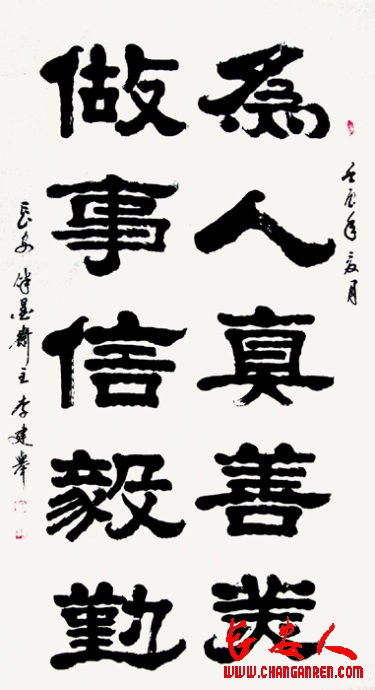 為人真善美
做事信毅勤
壬辰年夏月
長安 墨齋主李建舉
长安人
WWW.CHANGANREN.COM